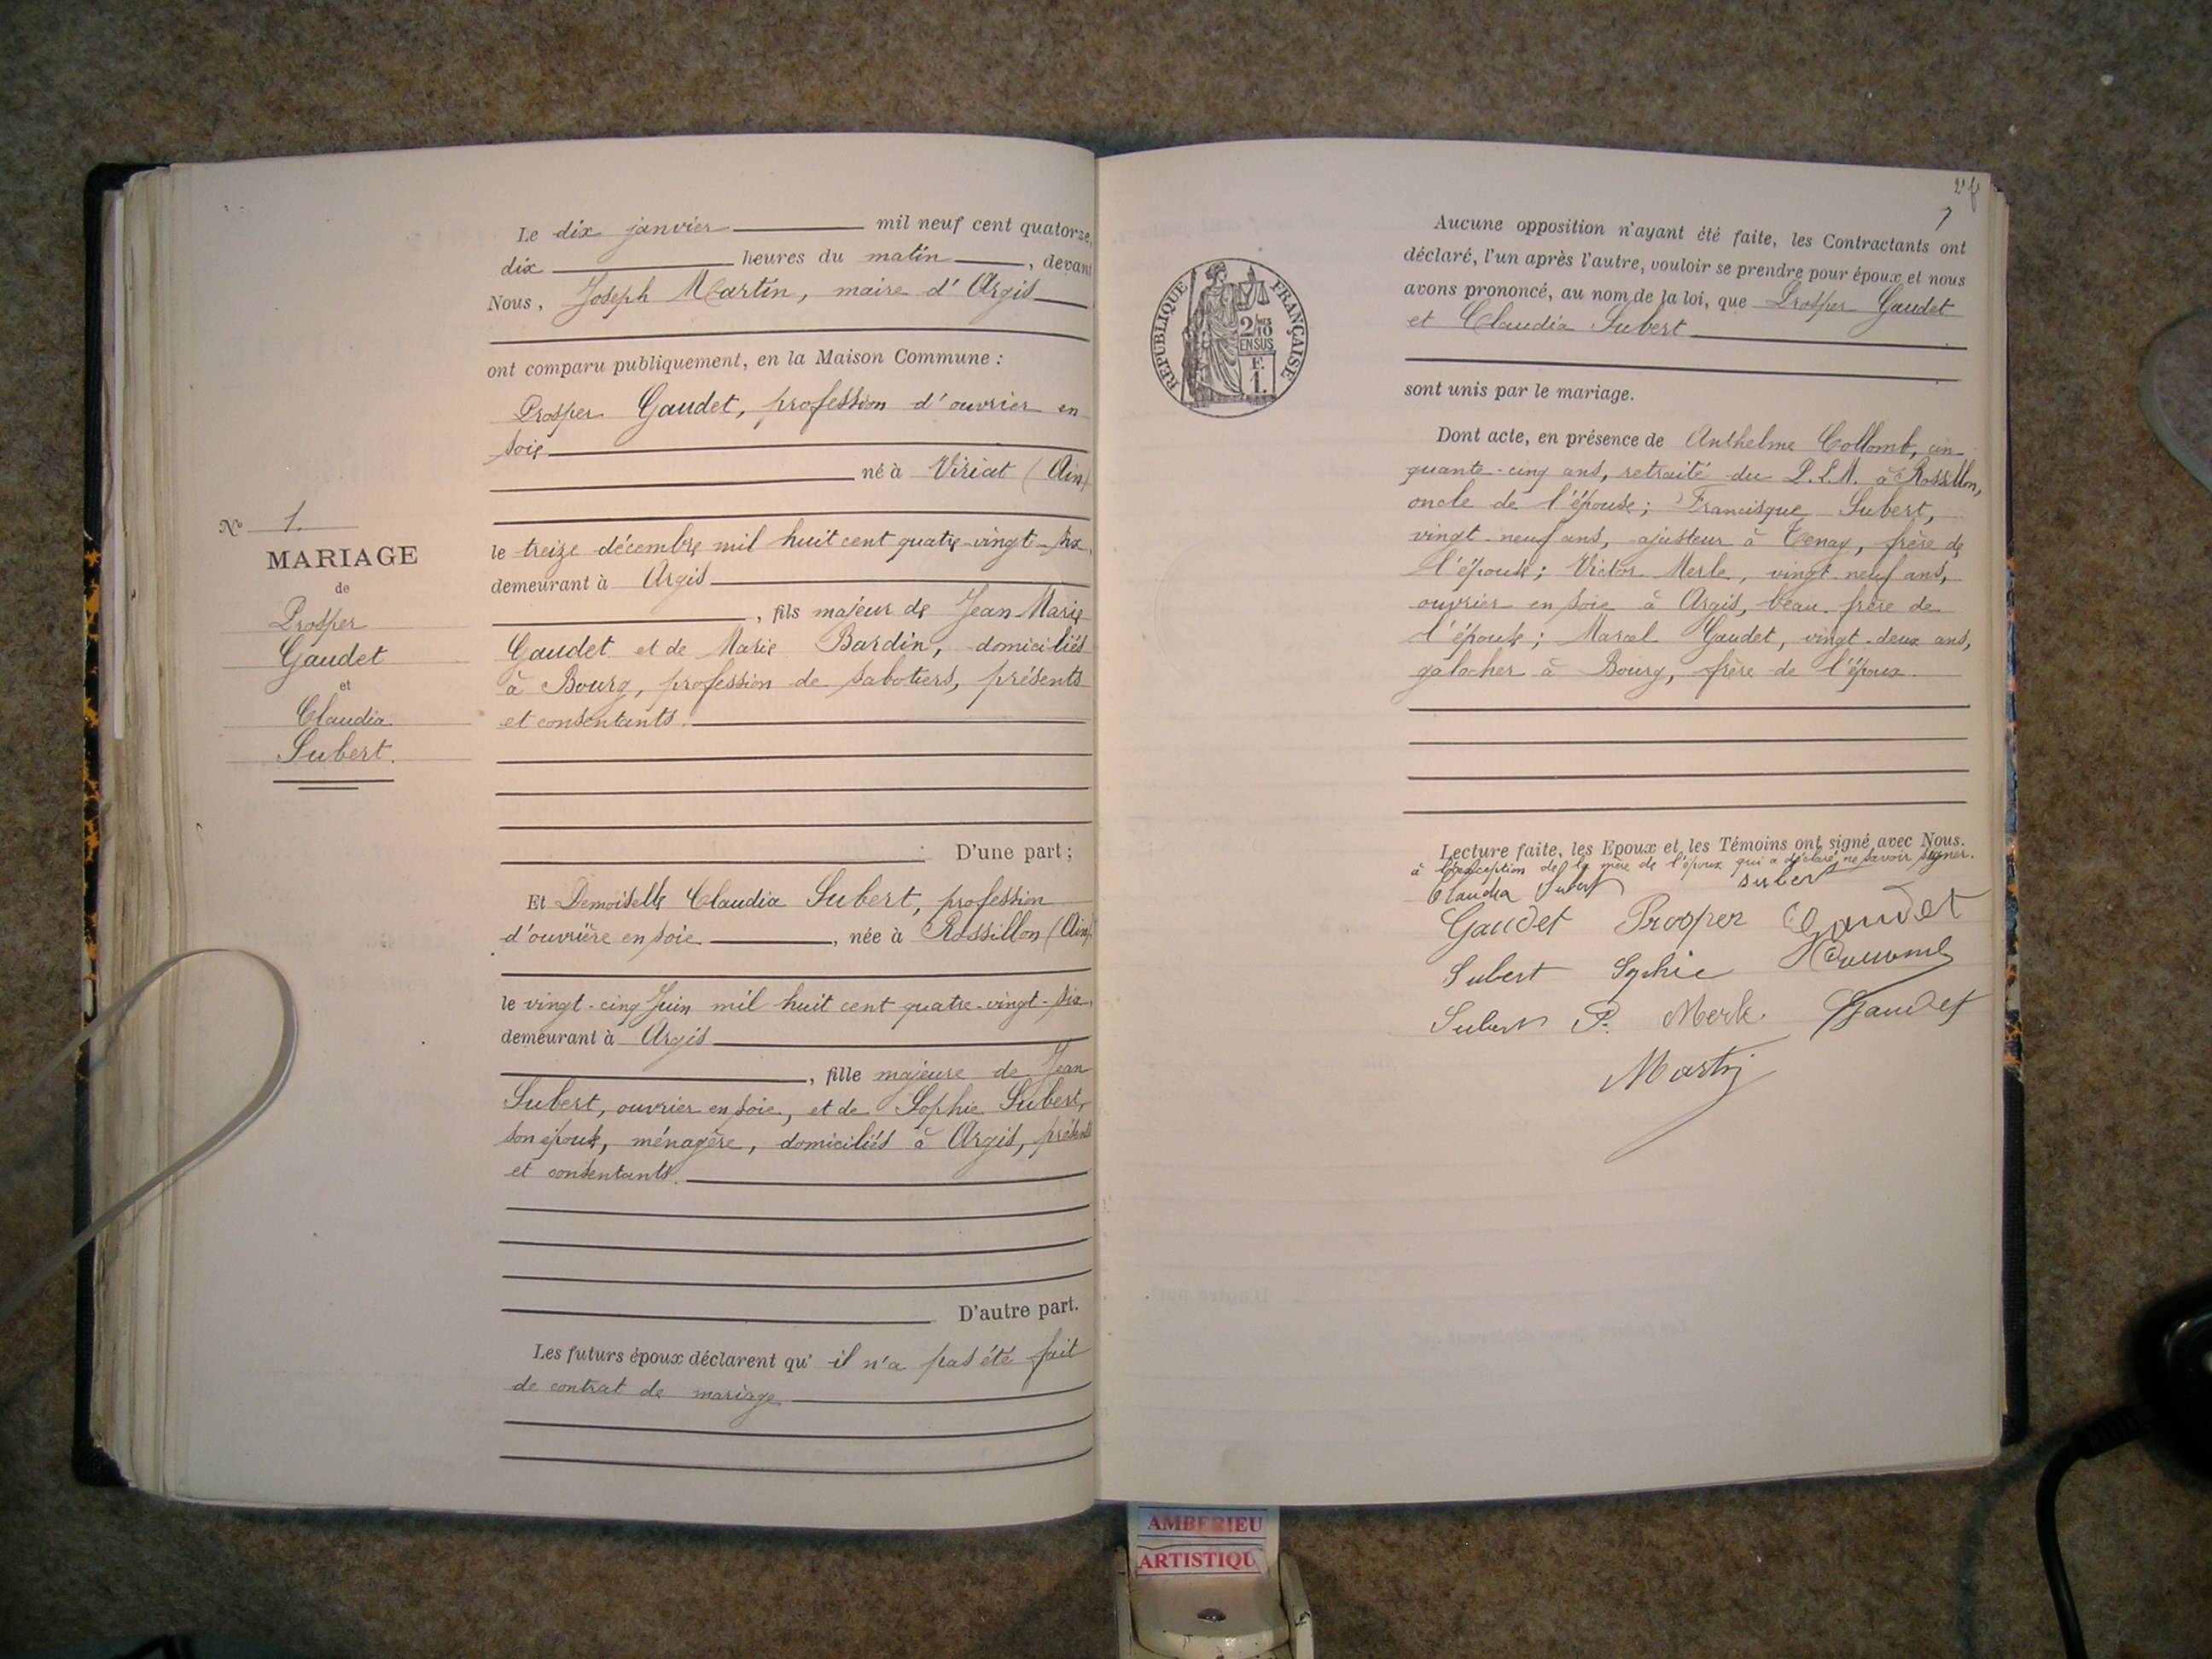 N° 1.
MARIAGE
de
Prosper
Gaudet
et
Claudia
Subert.
Le dix janvier mil neuf cent quatorze,
dix heures du matin, devant
Nous, Joseph Martin, maire d'Argis
ont comparu publiquement, en la Maison Commune :
Prosper Gaudet, profession d'ouvrier en
soie
né à Viriat (Ain)
le treize décembre mil huit cent quatre-vingt-six,
demeurant à Argis
, fils majeur de Jean-Marie
Gaudet et de Marie Bardin, domiciliés
à Bourg, profession de sabotiers, présents
et consentants.
D'une part ;
Et Demoiselle Claudia Subert, profession
d'ouvrière en soie, née à Rossillon (Ain),
le vingt-cinq Juin mil huit cent quatre-vingt-six,
demeurant à Argis
, fille majeure de Jean
Subert, ouvrier en soie, et de Sophie Subert,
son épouse, ménagère, domiciliés à Argis, présents
et consentants.
D'autre part.
Les futurs époux déclarent qu'il n'a pas été fait
de contrat de mariage
7
RÉPUBLIQUE FRANÇAISE
2/10
EN SUS
F.
1.
Aucune opposition n'ayant été faite, les Contractants ont
déclaré, l'un après l'autre, vouloir se prendre pour époux et nous
avons prononcé, au nom de la loi, que Prosper Gaudet
et Claudia Subert
sont unis par le mariage.
Dont acte, en présence de Anthelme Collomb, cin-
quante-cinq ans, retraité du P.L.M. à Rossillon,
oncle de l'épouse; Francisque Subert,
vingt-neuf ans, ajusteur à Tenay, frère de
l'épouse; Victor Merle, vingt-neuf ans,
ouvrier en soie à Argis, beau-frère de
l'épouse; Marcel Gaudet, vingt-deux ans,
galocher à Bourg, frère de l'époux.
Lecture faite, les Epoux et les Témoins ont signé avec Nous.
à l'exception de la mère de l'époux qui a déclaré ne savoir signer.
Claudia Subert Subert
Gaudet Prosper Gaudet
Subert Sophie
Subert Merle Gaudet
Martin
AMBERIEU
ARTISTIQU